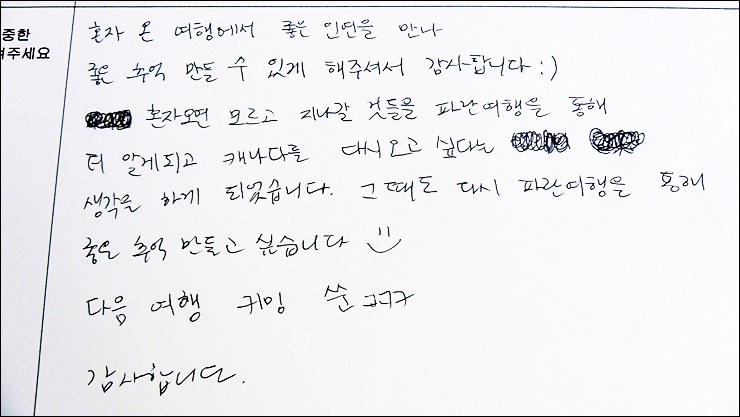 중한
려주세요
혼자 온 여행에서 좋은 인연을 만나
좋은 추억 만들 수 있게 해주셔서 감사합니다 :)
혼자오면 모르고 지나갈 것들을 파란여행을 통해
더 알게되고 캐나다를 다시오고 싶다는
생각을 하게 되었습니다. 그때도 다시 파란여행을 통해
좋은 추억 만들고 싶습니다
다음 여행 커밍 쑨 ㅋㅋㅋ
감사합니다.